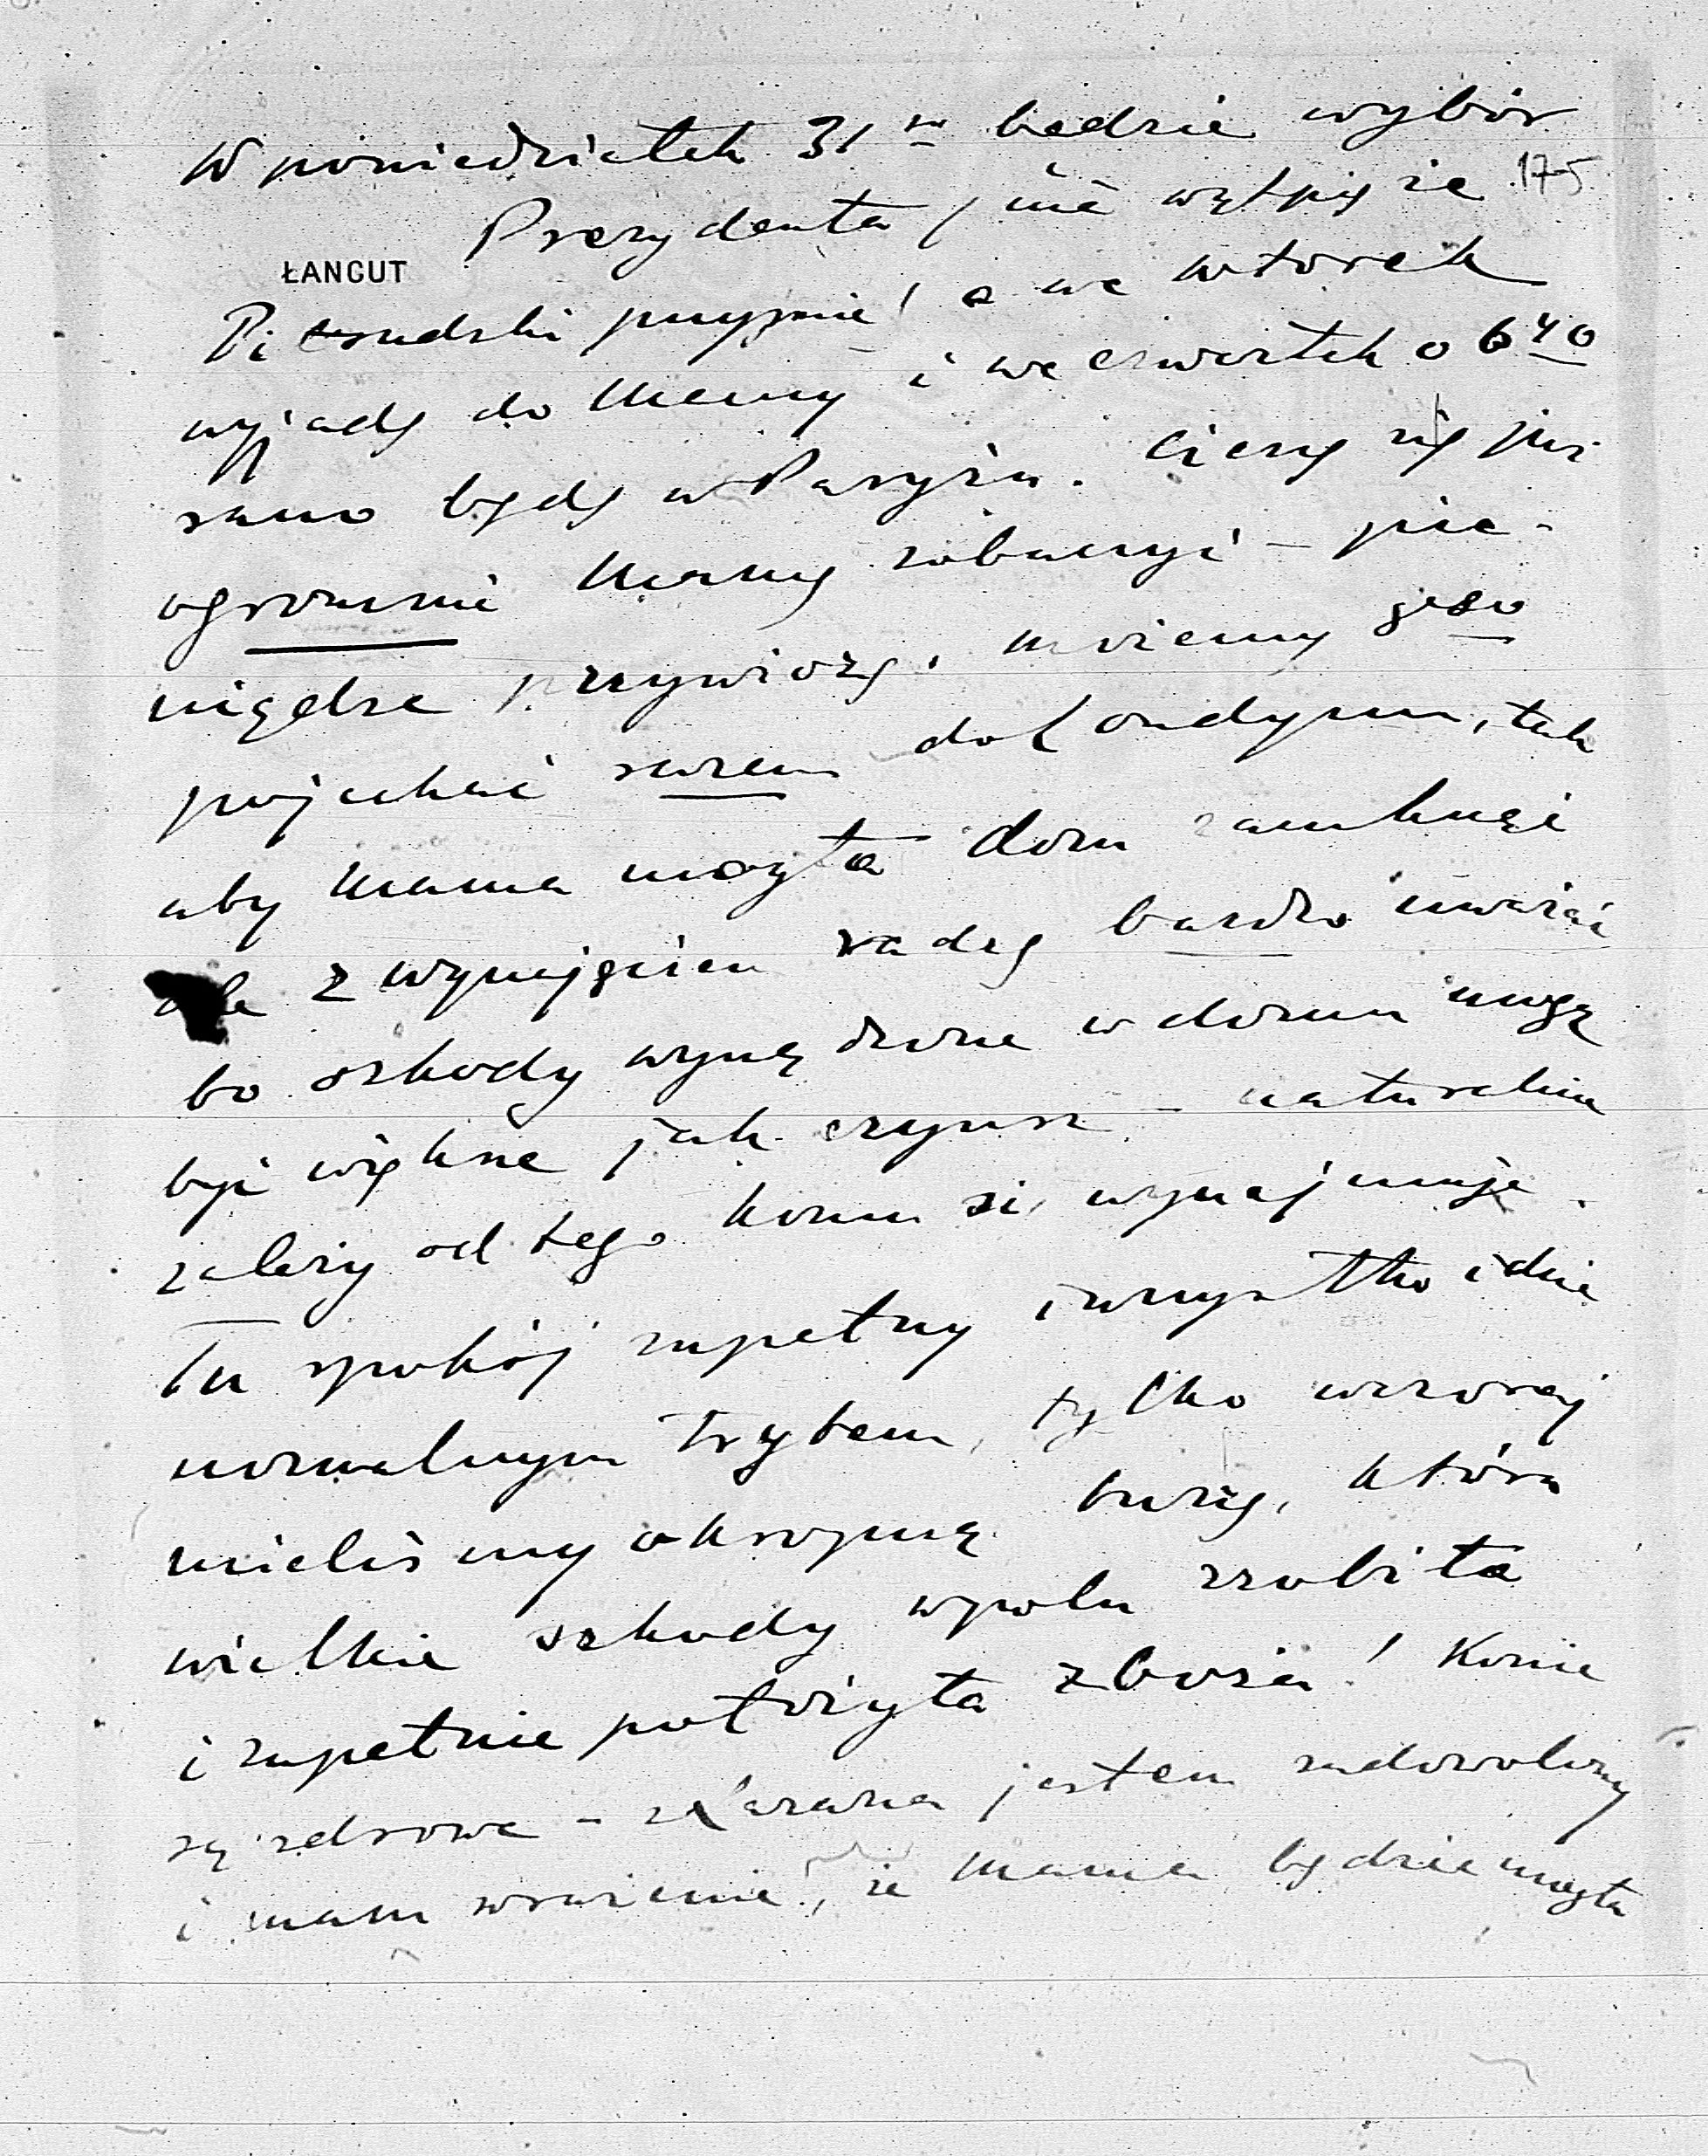 W poniedziałek 31 go będzie wybór
175
Prezydenta, nie wątpię że
ŁANCUT
Piłsudski przyjmie! a we wtorek
wyjadę do Mamy i we czwartek o 6 40
rano będę w Paryżu. Cieszę się już
ogromnie Mamę zobaczyć – pie-
niądze przywiozę. Możemy 9go
pojechać razem do Londynu, tak
aby Mama mogła dom zamknąć
ale z wynajęciem radzę bardzo uważać
bo szkody wyrządzone w domu mogą
być większe jak czynsz – naturalnie
zależy od tego komu się wynajmuje.
Tu spokój zupełny i wszystko idzie
normalnym trybem, tylko wczoraj
mieliśmy okropną burzę, która
wielkie szkody w polu zrobiła
i zupełnie położyła zboża! Konie
są zdrowe – z Karana jestem zadowolony
i mam wrażenie, że Mama będzie mogła